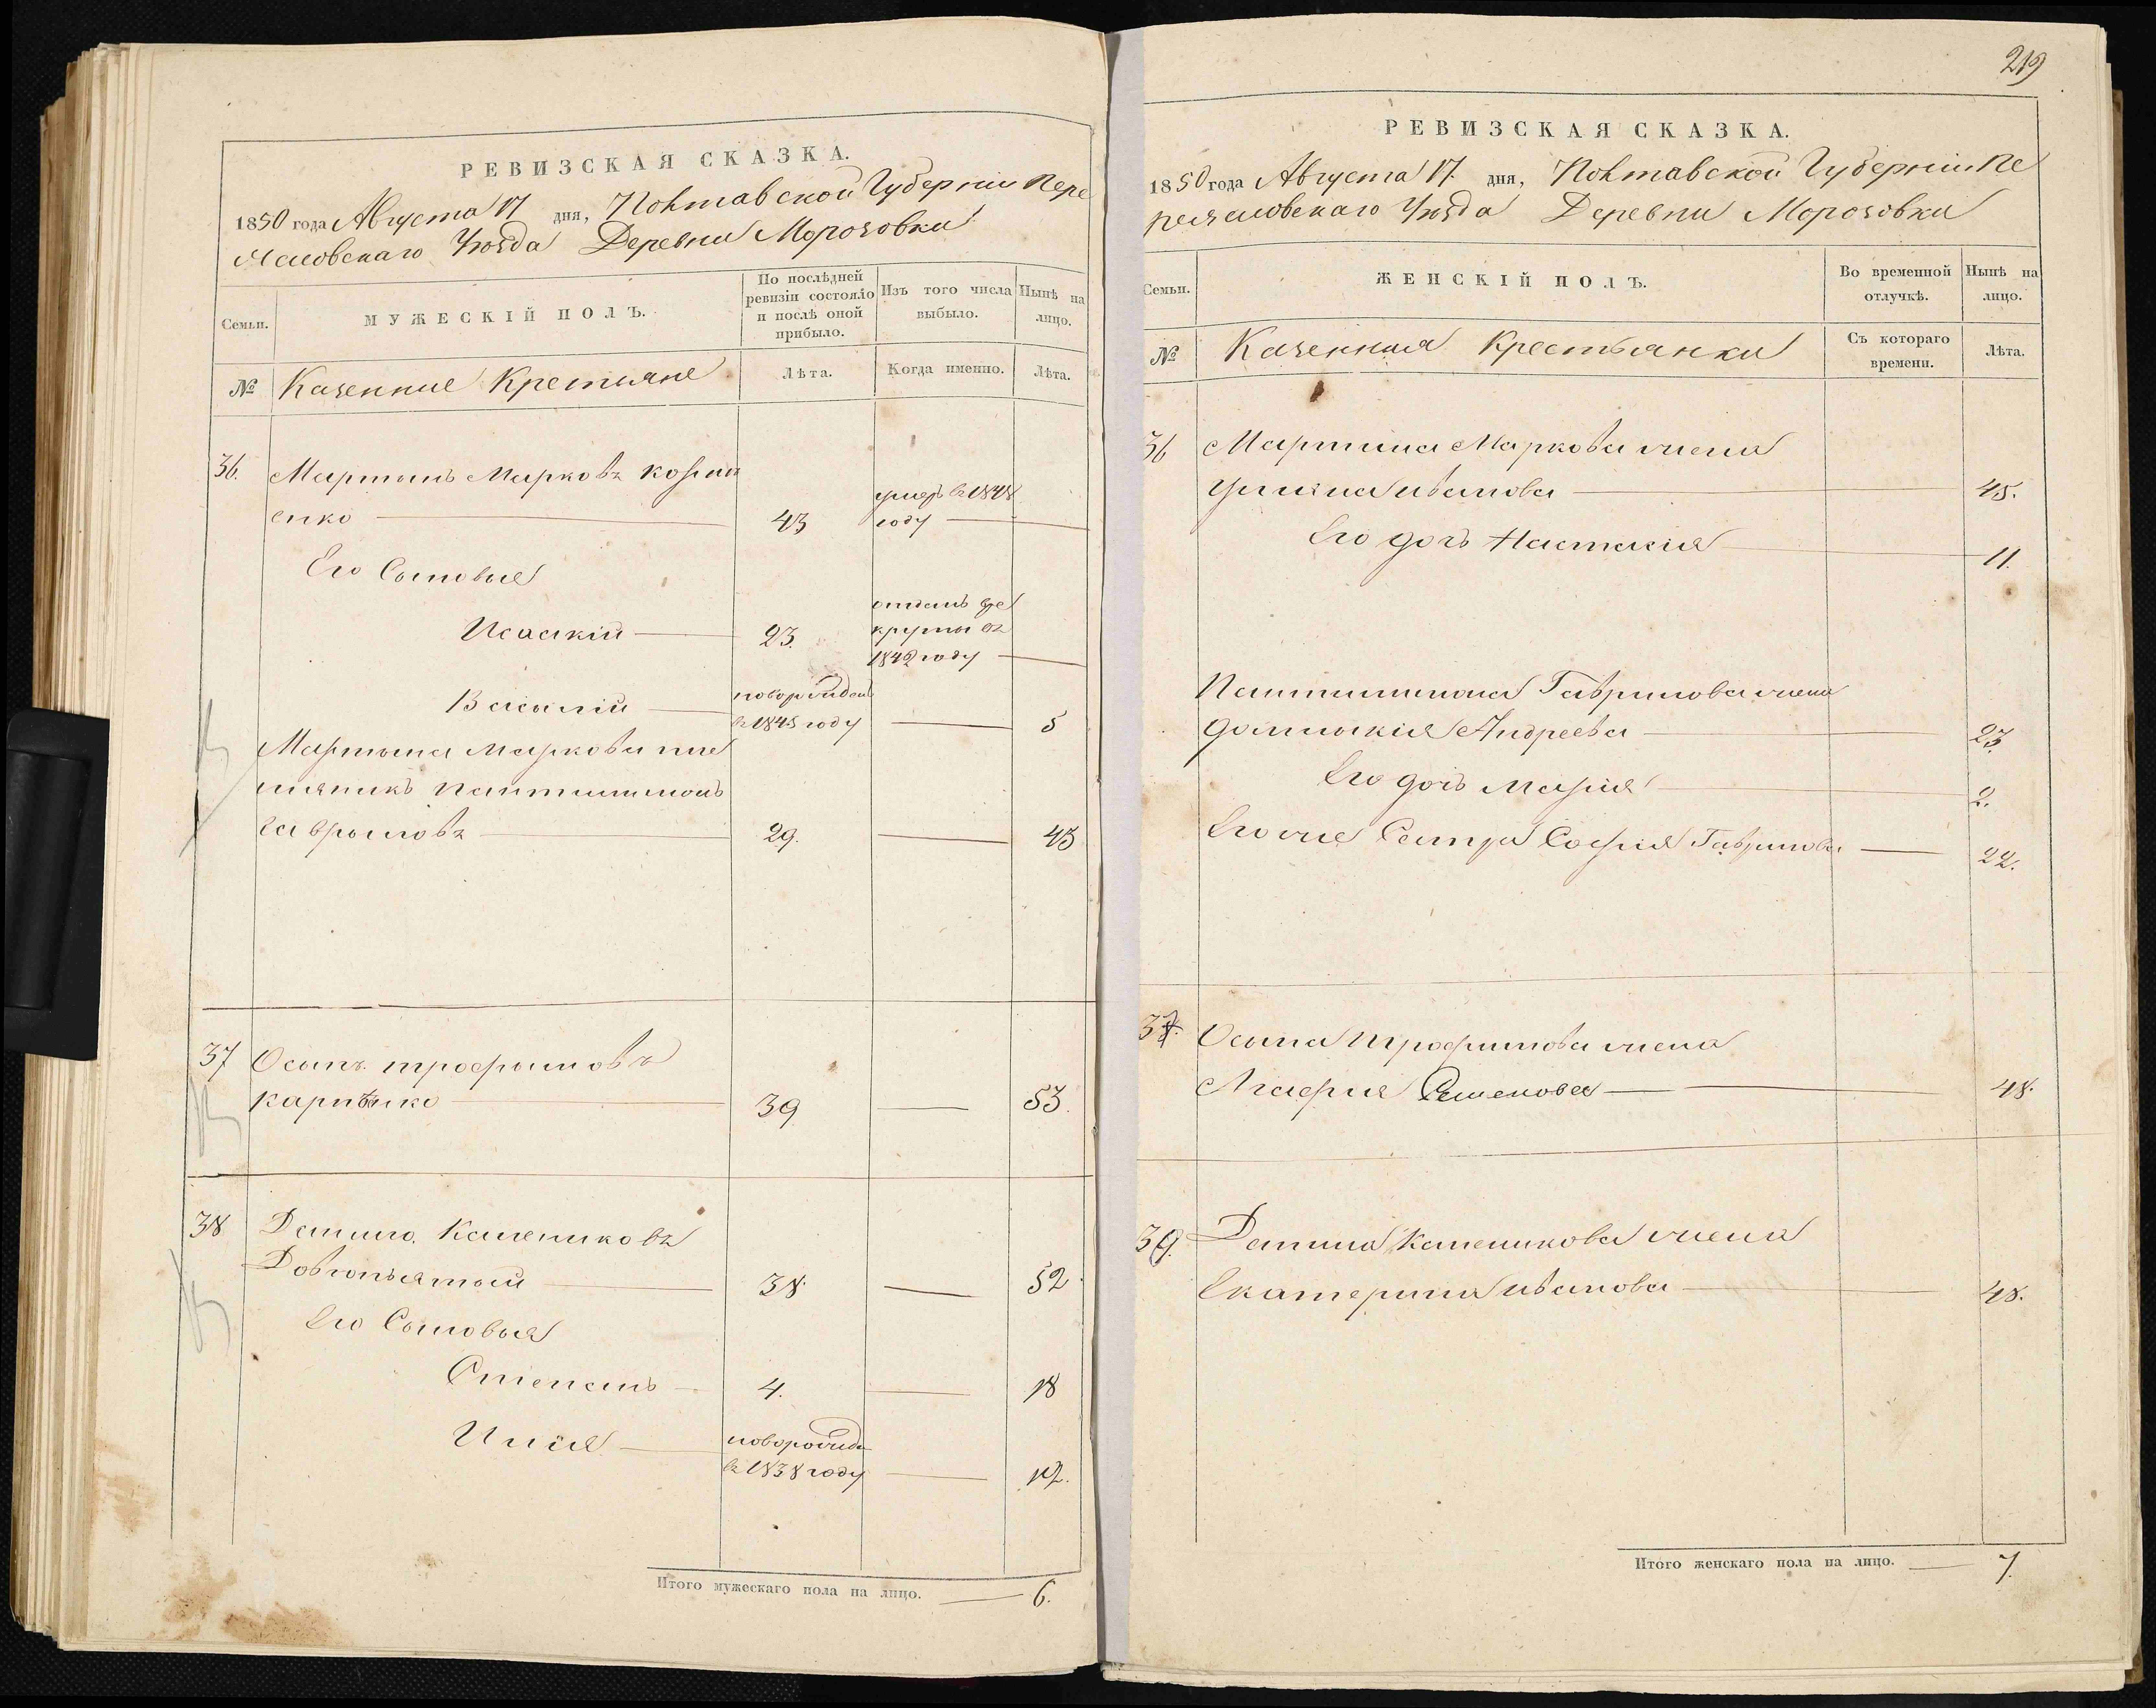 РЕВИЗСКАЯ СКАЗКА.
1850 года Августа 17 дня, Полтавской Губернiи Пере
яславскаго Уѣзда Деревни Морозовки
Семьи.
МУЖЕСКIЙ ПОЛЪ.
По послѣдней ревизiи состояло и послѣ оной прибыло.
Изъ того числа выбыло.
Нынѣ на лицо.
№ Казенние Крестияне
Лѣта. Когда именно. Лѣта.
36. Мартынъ Марковъ
енко 43 умеръ въ 1848 году
Его Сыновья
Исаакiй 23. отданъ въ рекруты въ 1842 году
Василiй новорожденъ въ 1845 году 5
Мартына Маркова пле
мяникъ Пантилимонъ
Гавриловъ 29. 43
37 Осипъ трофимовъ
карпенко 39 53.
38 Данило Калениковъ
Довгопятый 38 52.
Его Сыновья
Степанъ 4. 18
Илiя новорожде въ 1838 году 12.
Итого мужескаго пола на лицо. 6.
219
РЕВИЗСКАЯ СКАЗКА.
1850 года Августа 17. дня, Полтавской Губернiи Пе
реяславскаго Уѣзда Деревни Морозовки
Семьи.
ЖЕНСКIЙ ПОЛЪ.
Во временной отлучкѣ.
Нынѣ на лицо.
№ Казенния Крестьянки
Съ котораго времени. Лѣта.
36 Мартина Маркова жена
Улияна иванова 45.
Его дочь Настасия 11.
Пантилимона Гаврилова жена
домникия Андреева 23.
Его дочь Мария 2.
Его же Сестра София Гаврилова 22.
37. Осипа трофимова жена
Семенова 48.
39. Данила Каленикова жена
Екатерина иванова 48.
Итого женскаго пола на лицо. 7.